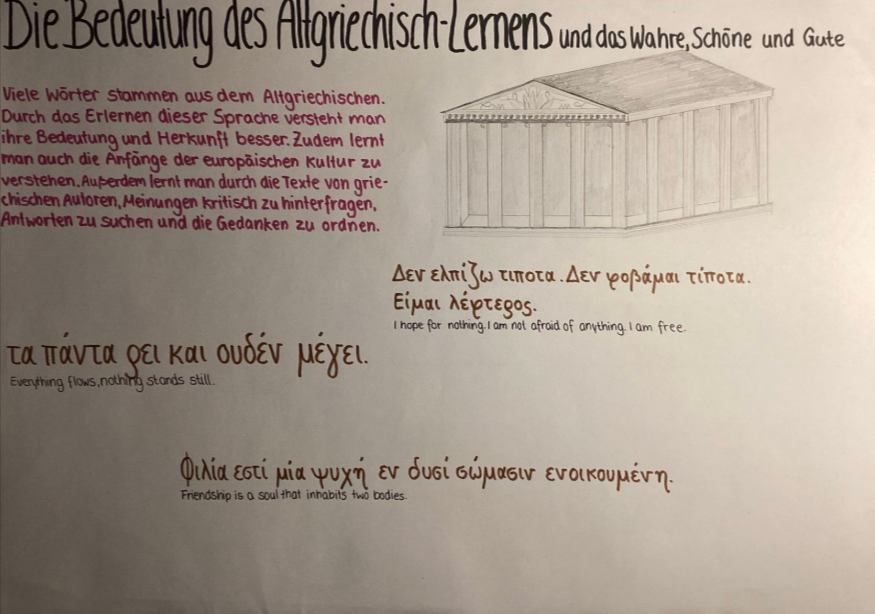 Die Bedeutung des Altgriechisch-Lernens und das Wahre, Schöne und Gute
Viele Wörter stammen aus dem Altgriechischen.
Durch das Erlernen dieser Sprache versteht man
ihre Bedeutung und Herkunft besser. Zudem lernt
man auch die Anfänge der europäischen Kultur zu
verstehen. Außerdem lernt man durch die Texte von grie-
chischen Autoren, Meinungen kritisch zu hinterfragen,
Antworten zu suchen und die Gedanken zu ordnen.
Δεν ελπίζω τιποτα. Δεν φοβάμαι τίποτα.
Είμαι λέρτερος.
I hope for nothing. I am not afraid of anything. I am free.
τα πάντα ρει και ουδέν μέγει.
Everything flows, nothing stands still.
Φιλία εστί μία ψυχή εν δυσί σώμασιν ενοικουμένη.
Friendship is a soul that inhabits two bodies.